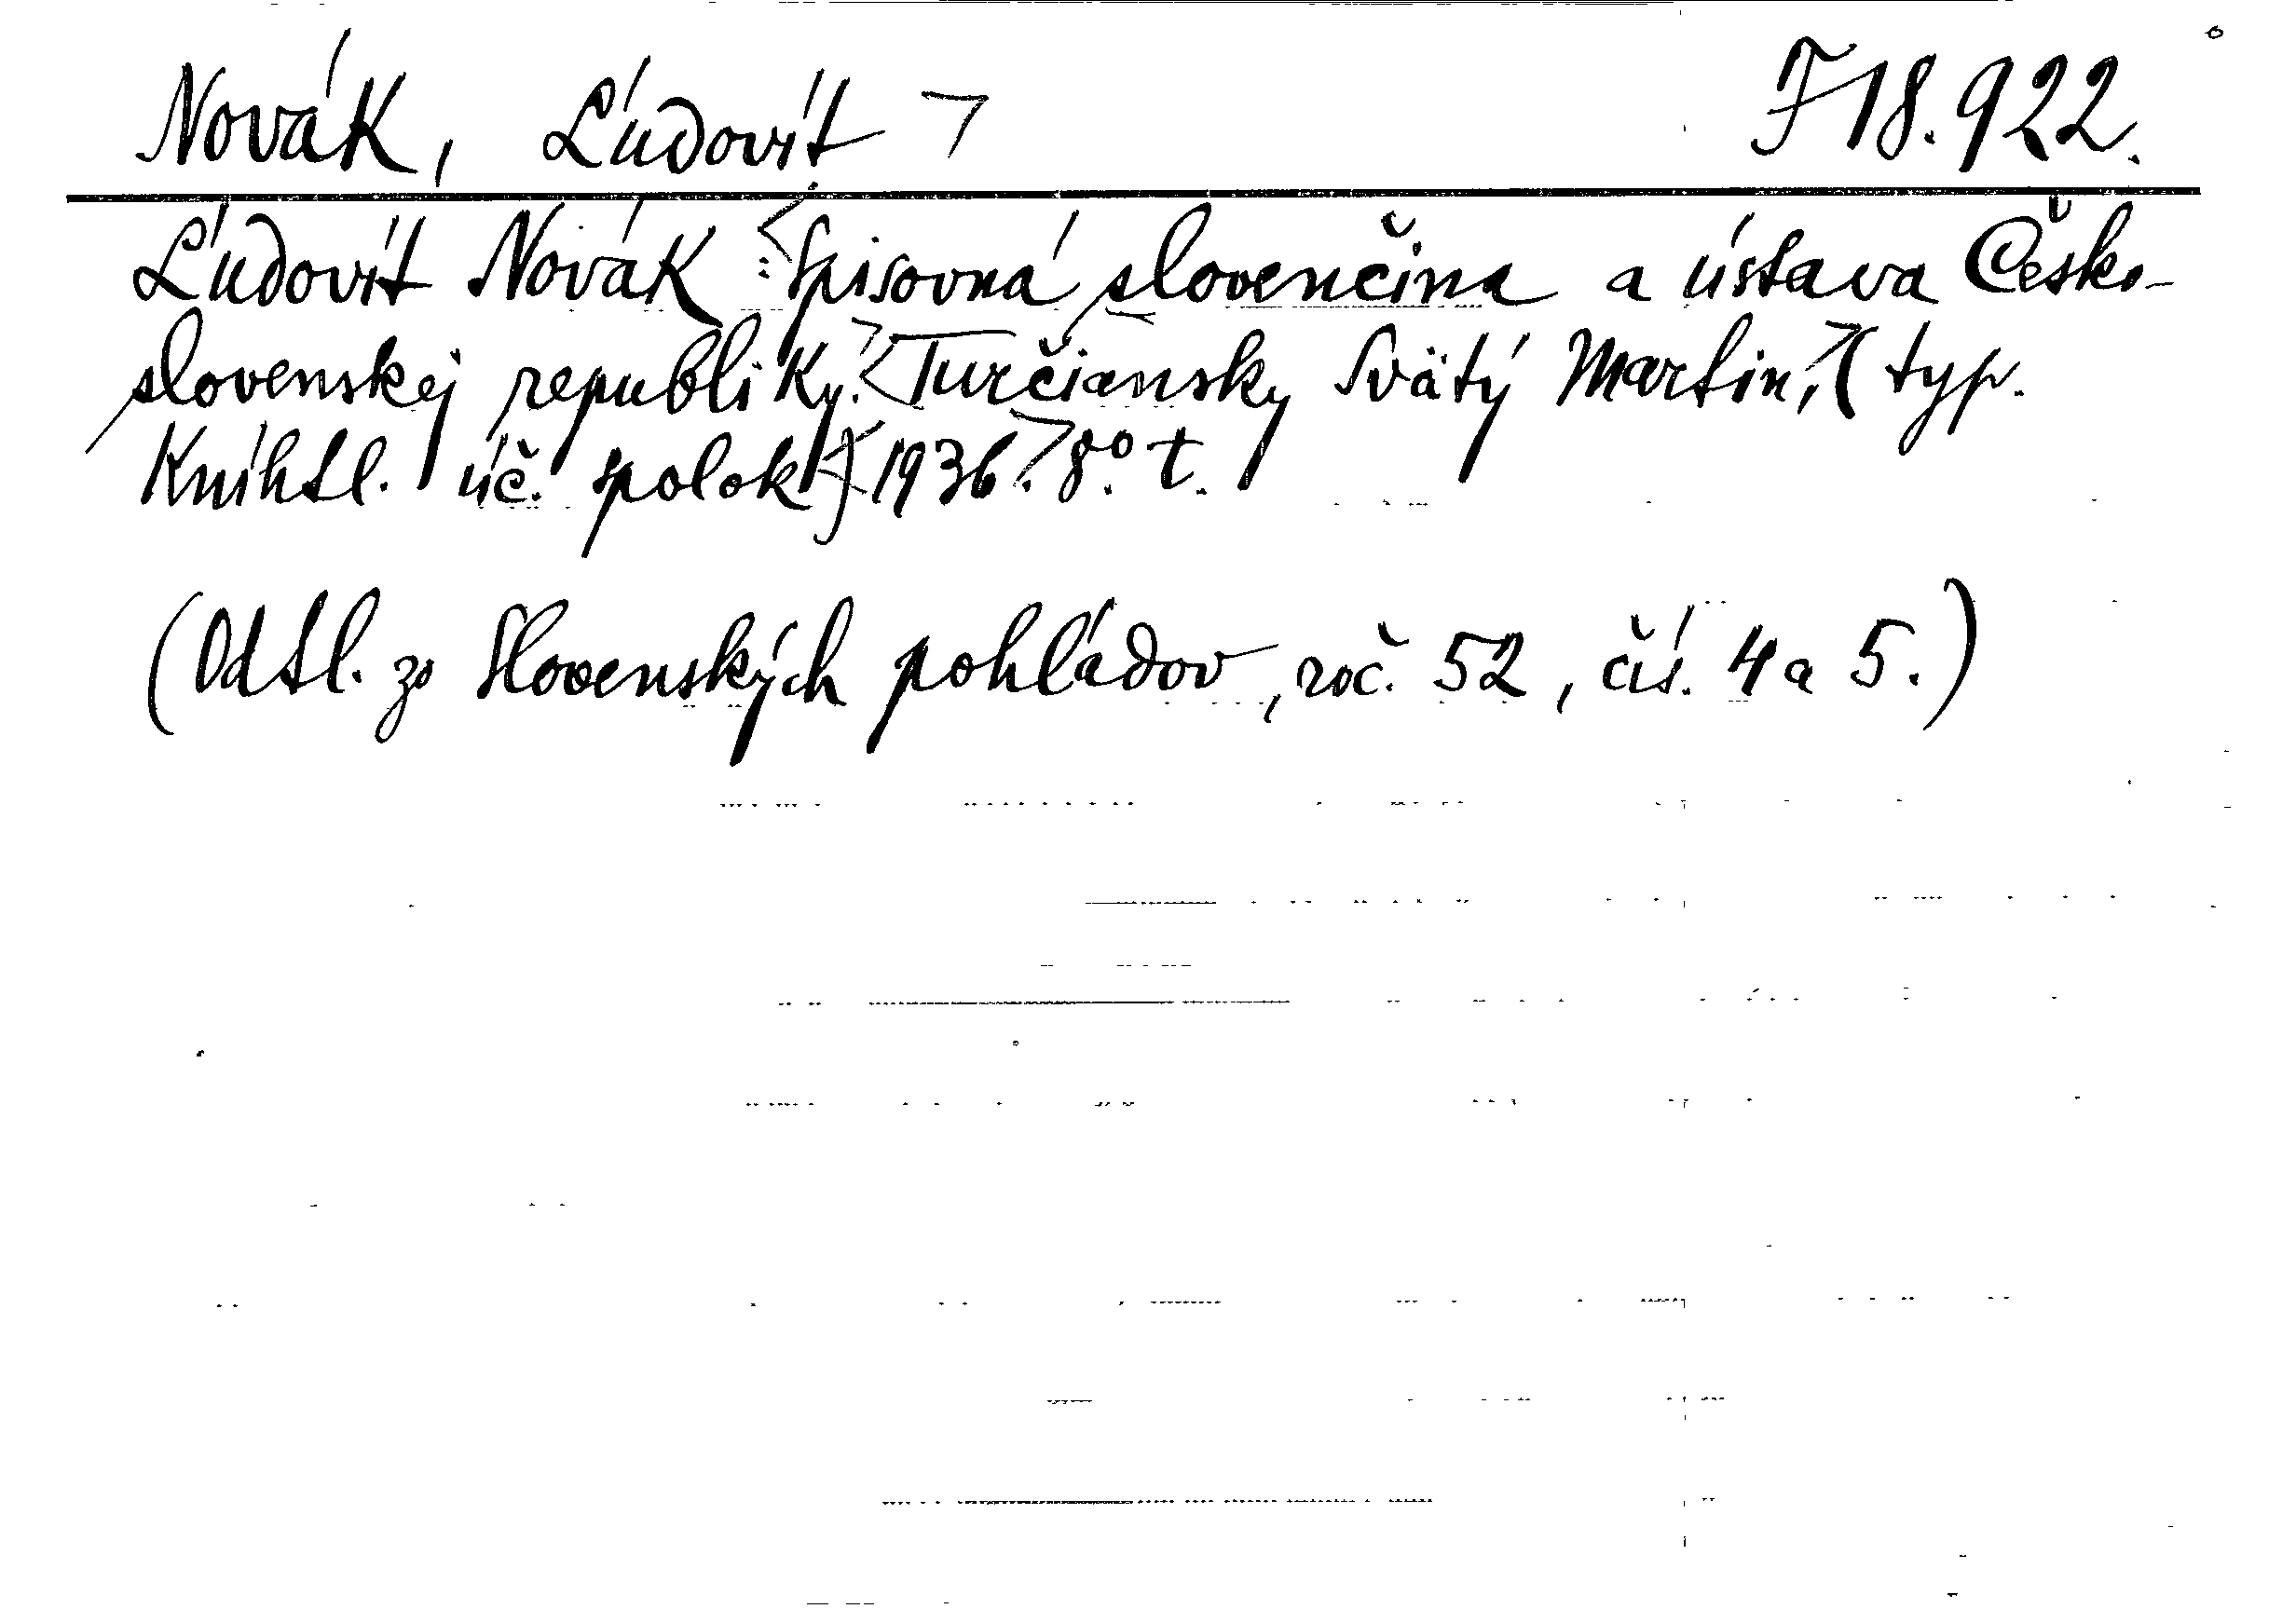 Novák, Ľudovít F 18.922.
Ľudovít Novák: Spisovná slovenčina a ústava Česko-
slovenskej republiky. Turčiansky Svätý Martin, (typ.
Kníhtl. úč. spolok) 1936. 8° t.
(Odtl. zo Slovenských pohľadov, roč. 52, čís. 4 a 5.)